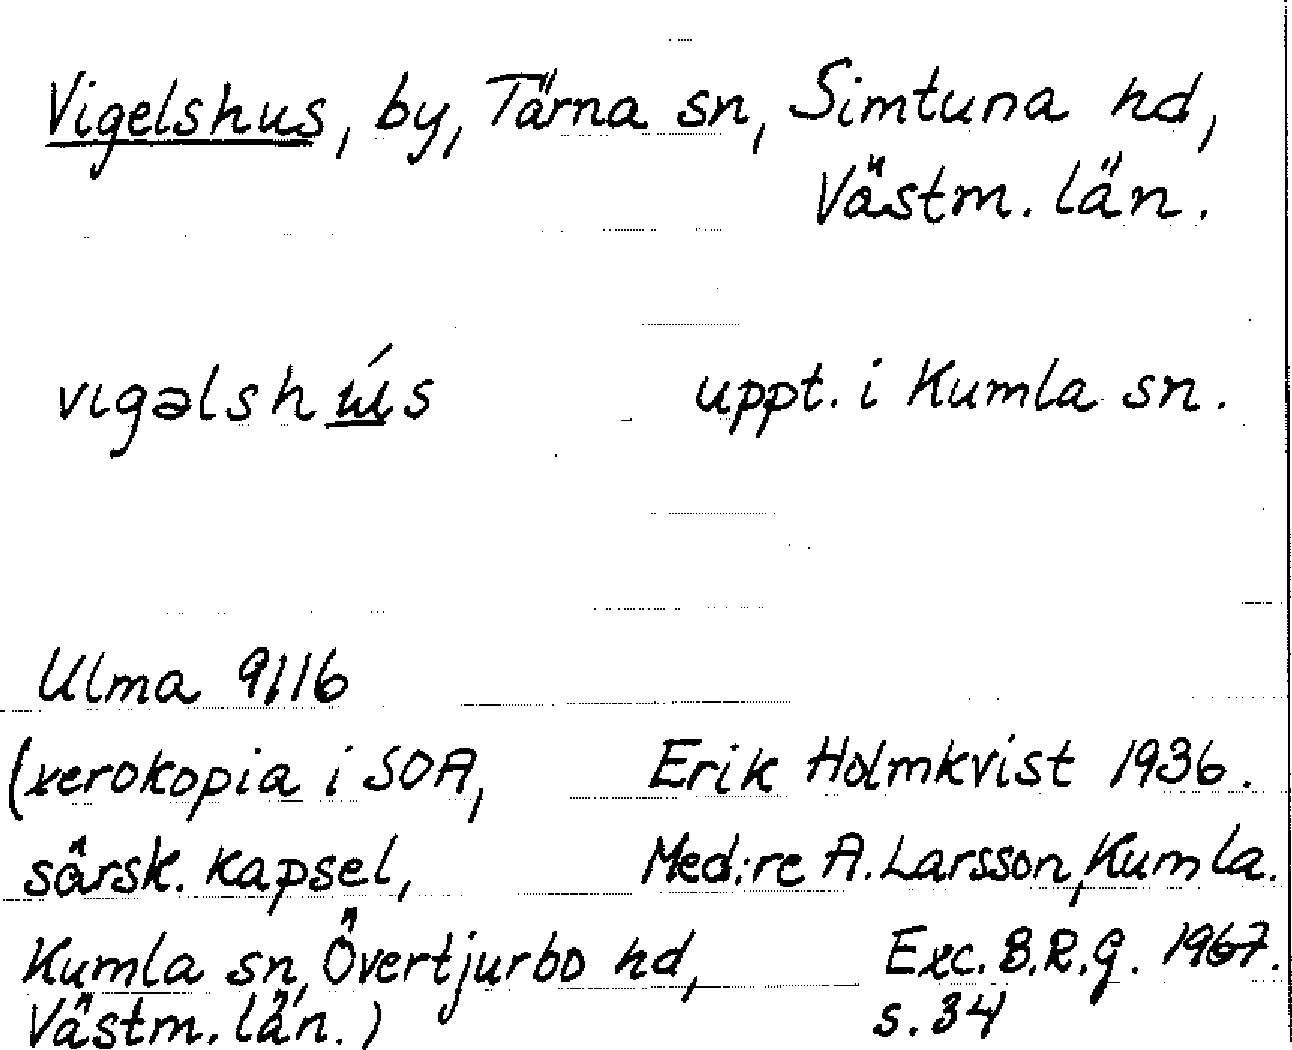 Vigelshus, by, Tärna sn, Simtuna hd,
Västm. län.
vıgəlshú̲s uppt. i Kumla sn.
Ulma 9116
(xerokopia i SOA, Erik Holmkvist 1936.
särsk. kapsel, Med:re A. Larsson, Kumla.
Kumla sn, Övertjurbo hd, Exc. B.R.G. 1967.
Västm. län.) s. 34